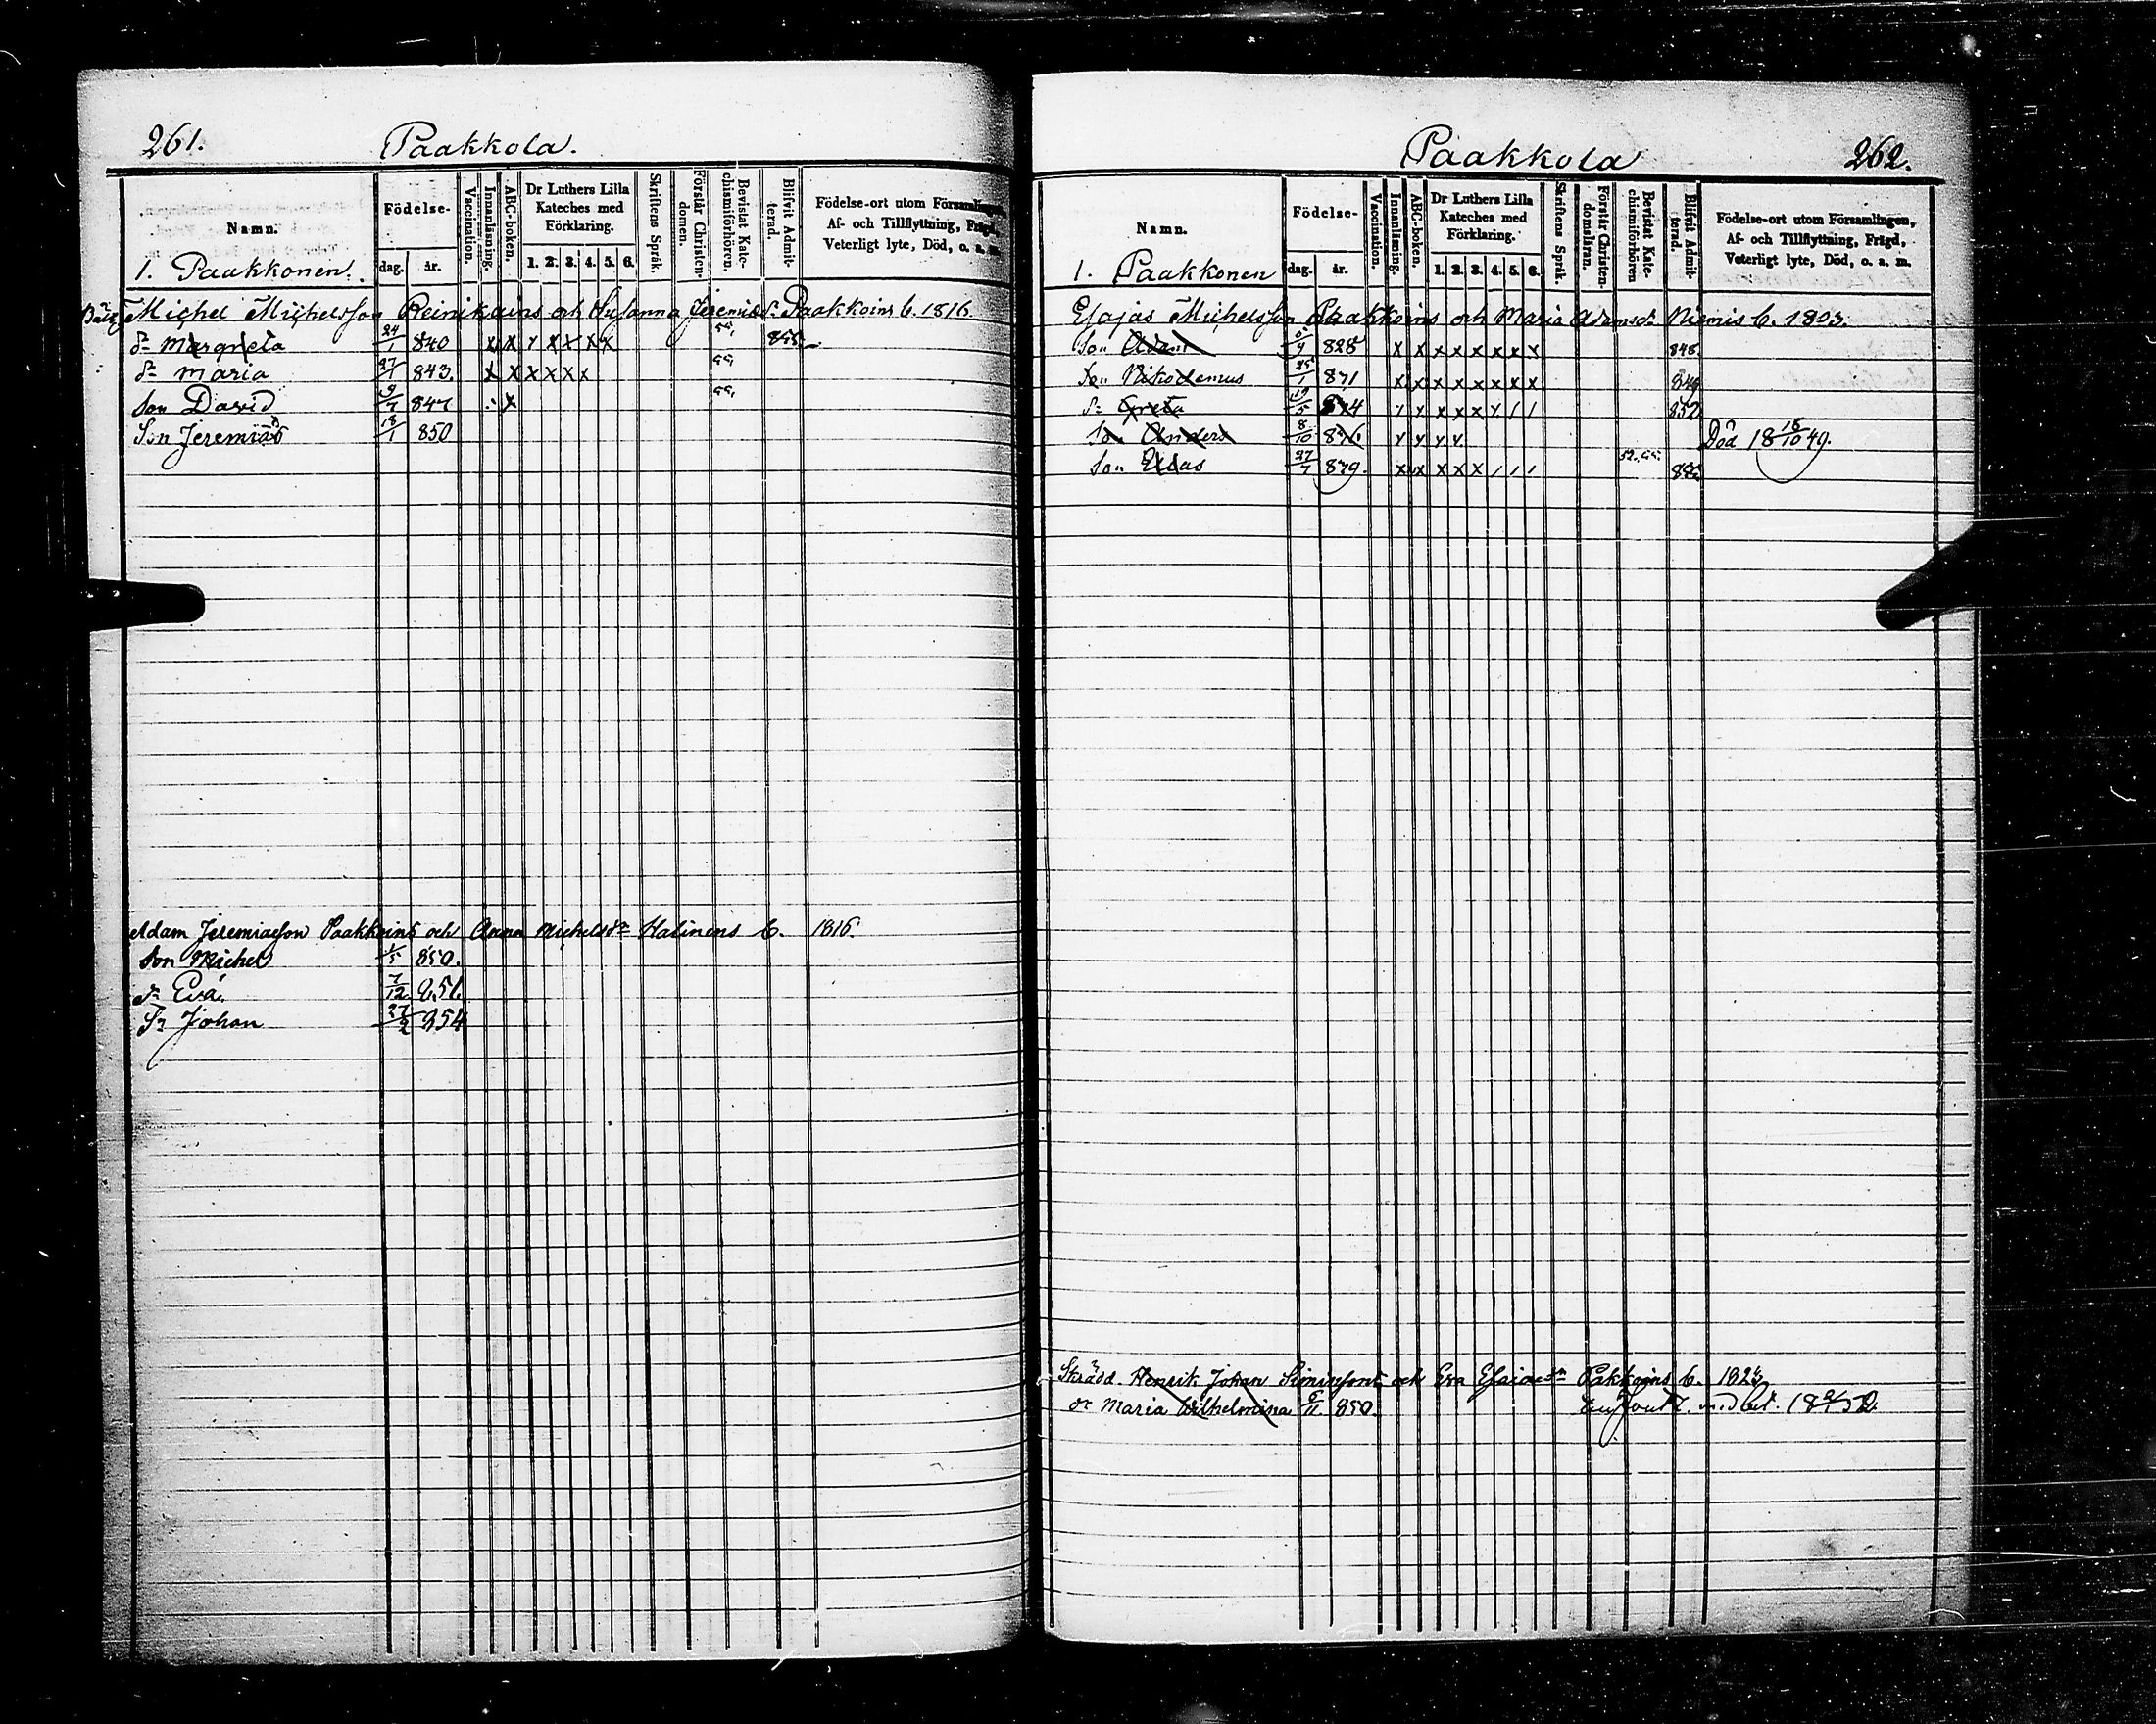 261.
Paakkola.
Namn.
Födelse-
dag. år.
Vaccination.
Innanläsning.
ABC-boken.
Dr Luthers Lilla
Kateches med
Förklaring.
1. 2. 3. 4. 5. 6.
Skriftens Språk.
Förstår Christen-
domen.
Bevistat Kate-
chismiförhören.
Blifvit Admit-
terad.
Födelse-ort utom Församlingen,
Af- och Tillflyttning, Frägd,
Veterligt lyte, Död, o. a. m.
1. Paakkonen.
Michel Michelsson Reinikains och Susanna Jeremiæd:r Paakkoins b. 1816.
dr Margreta 24/1 840 x x x x x x x 55, 855.
dr Maria 27/1 843. x x x x x x 55,
Son David 9/7 847 x 55,
Son Jeremias 18/1 850
Adam Jeremiaeson Paakkoins och Anna Michelsdr Halinens b. 1816.
Son Michel 1/5 850.
dr Eva. 7/12 851.
Sn Johan 27/2 854
Paakkola
262.
Namn.
Födelse-
dag. år.
Vaccination.
Innanläsning.
ABC-boken.
Dr Luthers Lilla
Kateches med
Förklaring.
1. 2. 3. 4. 5. 6.
Skriftens Språk.
Förstår Christen-
domsläran.
Bevistat Kate-
chismiförhören
Blifvit Admit-
terad.
Födelse-ort utom Församlingen,
Af- och Tillflyttning, Frägd,
Veterligt lyte, Död, o. a. m.
1. Paakkonen
Esajas Michelsson Paakkoins och Maria Adamsdr Niemis b. 1803.
Son Adam 5/9 828 x x x x x x x x 848.
Son Nikodemus 25/1 831 x x x x x x x x 849
dr Greta 19/5 834 x x x x x x / / 852
Son Anders 8/10 836. x x x x Död 18 15/10 49.
Son Elias 27/7 839. x x x x x / / / 52. 55. 856.
Skrädd. Henrik Johan Simonsons och Eva Esaiaedr Pakkoins b. 1823
dr Maria Wilhelmina 6/11. 850.